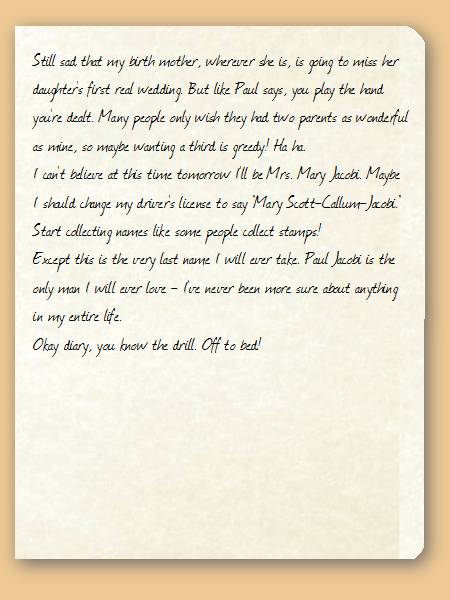 Still sad that my birth mother, wherever she is, is going to miss her
daughter's first real wedding. But like Paul says, you play the hand
you're dealt. Many people only wish they had two parents as wonderful
as mine, so maybe wanting a third is greedy! Ha ha.
I can't believe at this time tomorrow I'll be Mrs. Mary Jacobi. Maybe
I should change my driver's license to say "Mary Scott-Callum-Jacobi."
Start collecting names like some people collect stamps!
Except this is the very last name I will ever take. Paul Jacobi is the
only man I will ever love - I've never been more sure about anything
in my entire life.
Okay diary, you know the drill. Off to bed!